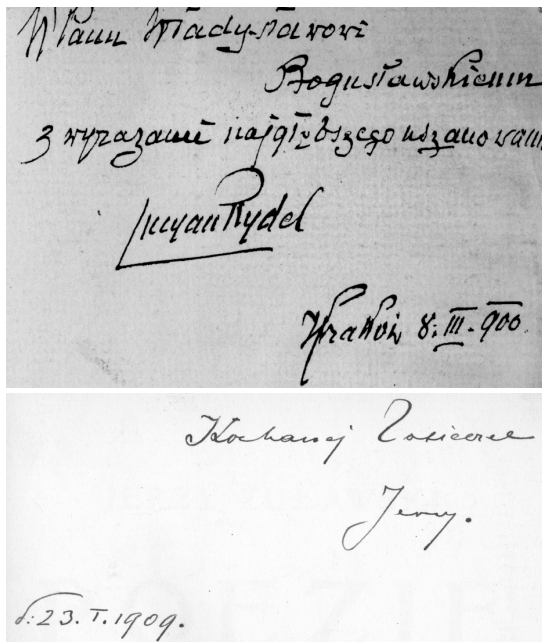 W Panu Władysławowi
Bogusławskiemu
z wyrazami najgłębszego uszanowani
Lucyan Rydel
Kraków 8. III. 900.
Kochanej Zosieczce
Jerzy.
d. 23. I. 1909.